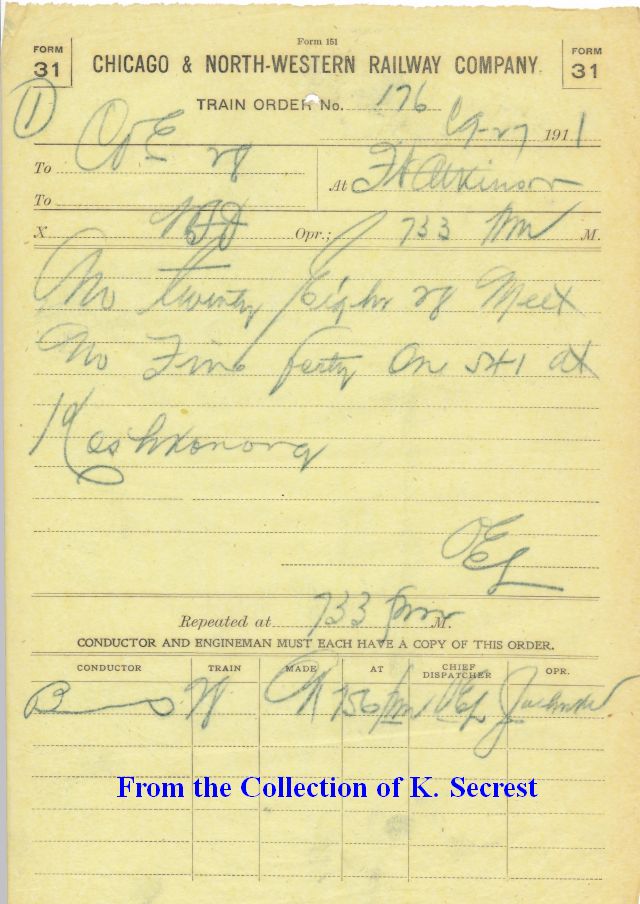 Form 151
FORM 31
CHICAGO & NORTH-WESTERN RAILWAY COMPANY.
FORM 31
TRAIN ORDER No. 176
1
9-27 1911
To C&E 28
At Ft Atkinson
To
X Opr.; 733 PM M.
No Twenty Eight 28 Meet
No Five forty One 541 at
Koshkonong
OEL
Repeated at 733 pm M.
CONDUCTOR AND ENGINEMAN MUST EACH HAVE A COPY OF THIS ORDER.
CONDUCTOR TRAIN MADE AT CHIEF DISPATCHER OPR.
28 756 pm OEL
From the Collection of K. Secrest